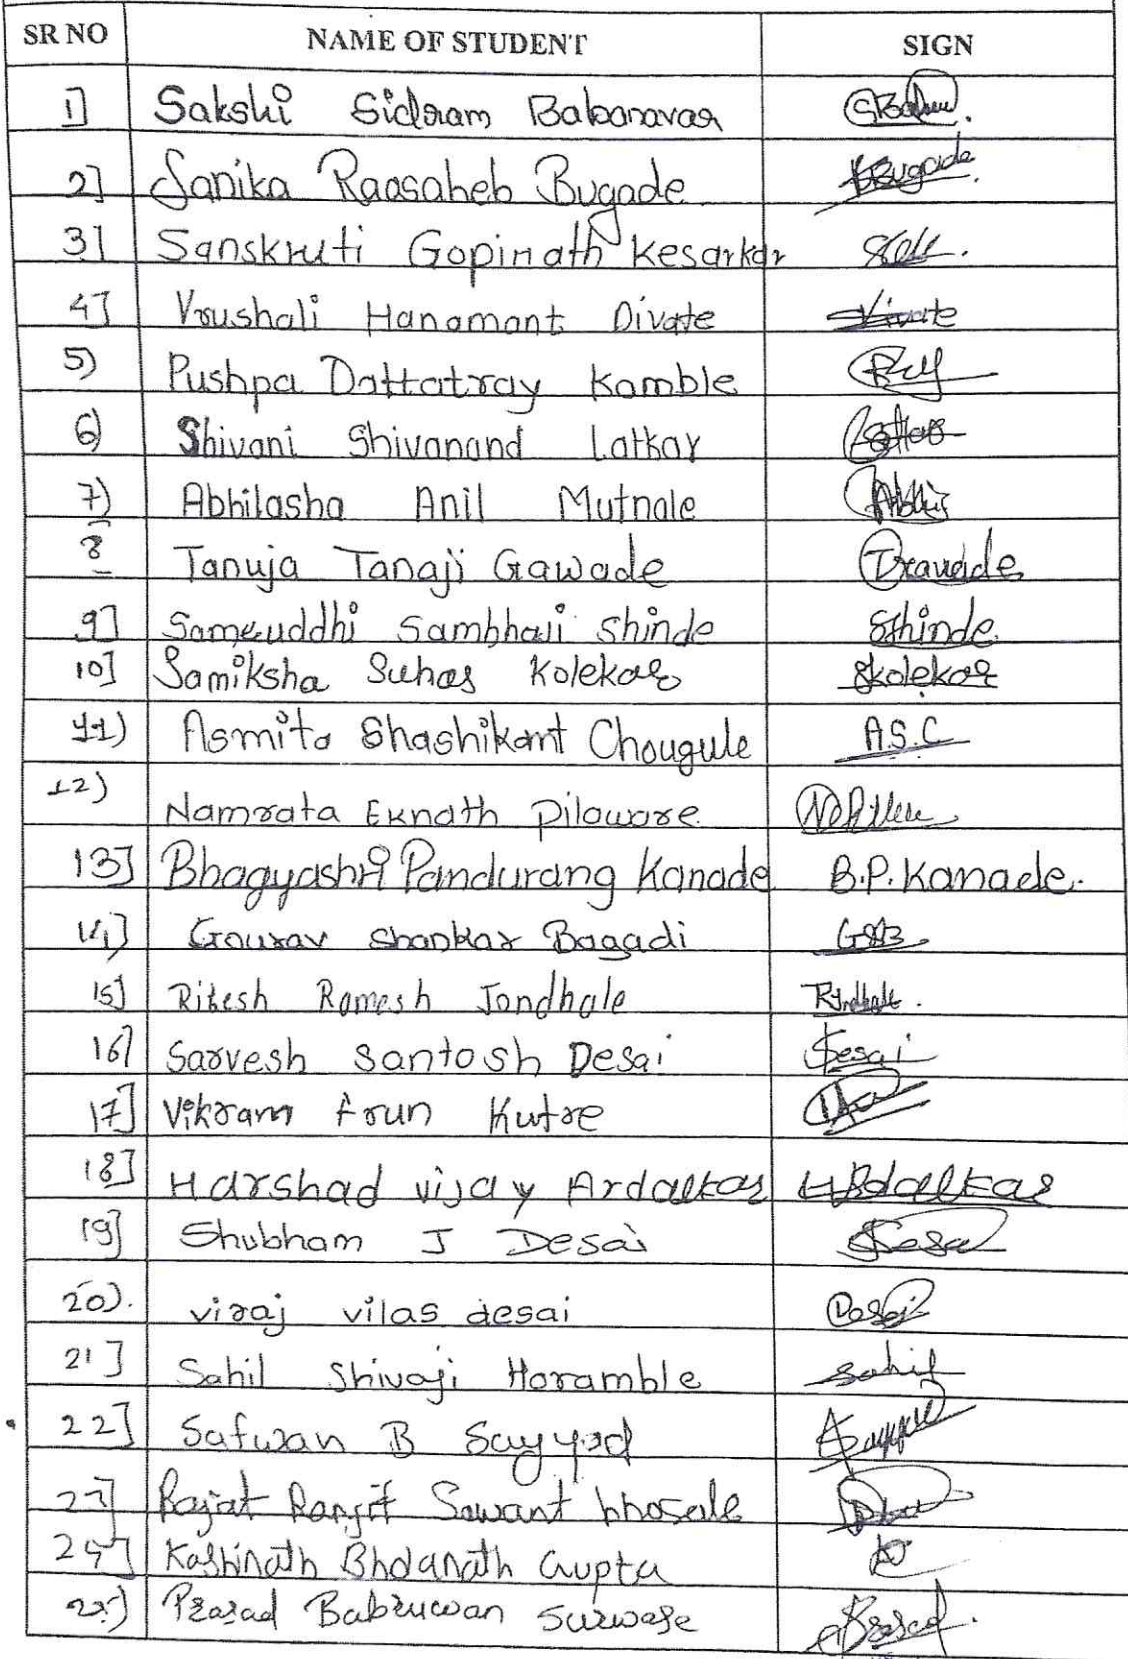 SR NO NAME OF STUDENT SIGN
1] Sakshi Sidram Babanavar
2] Sanika Raosaheb Bugade Bugade
3] Sanskruti Gopinath Kesarkar
4] Vrushali Hanamant Divate
5) Pushpa Dattatray Kamble
6) Shivani Shivanand Latkar
7) Abhilasha Anil Mutnale
8 Tanuja Tanaji Gawade
9] Samruddhi Sambhaji Shinde SShinde
10] Samiksha Suhas Kolekar Skolekar
11) Asmita Shashikant Chougule A.S.C
12) Namrata Eknath Pilaware
13] Bhagyashri Pandurang Kanade B.P. Kanade.
14] Gourav Shankar Bagadi GSB
15] Ritesh Ramesh Jondhale RJondhale.
16] Sarvesh Santosh Desai Desai
17] Vikram Arun Kutre
18] Harshad vijay Ardalkar HArdalkar
19] Shubham J Desai
20). viraj vilas desai Desai
21] Sahil Shivaji Horamble Sahil
22] Safwan B Sayyad
23] Rajat Ranjit Sawant bhosale
24] Kashinath Bholanath Gupta
25) Prasad Babruwan Surwase Prasad.